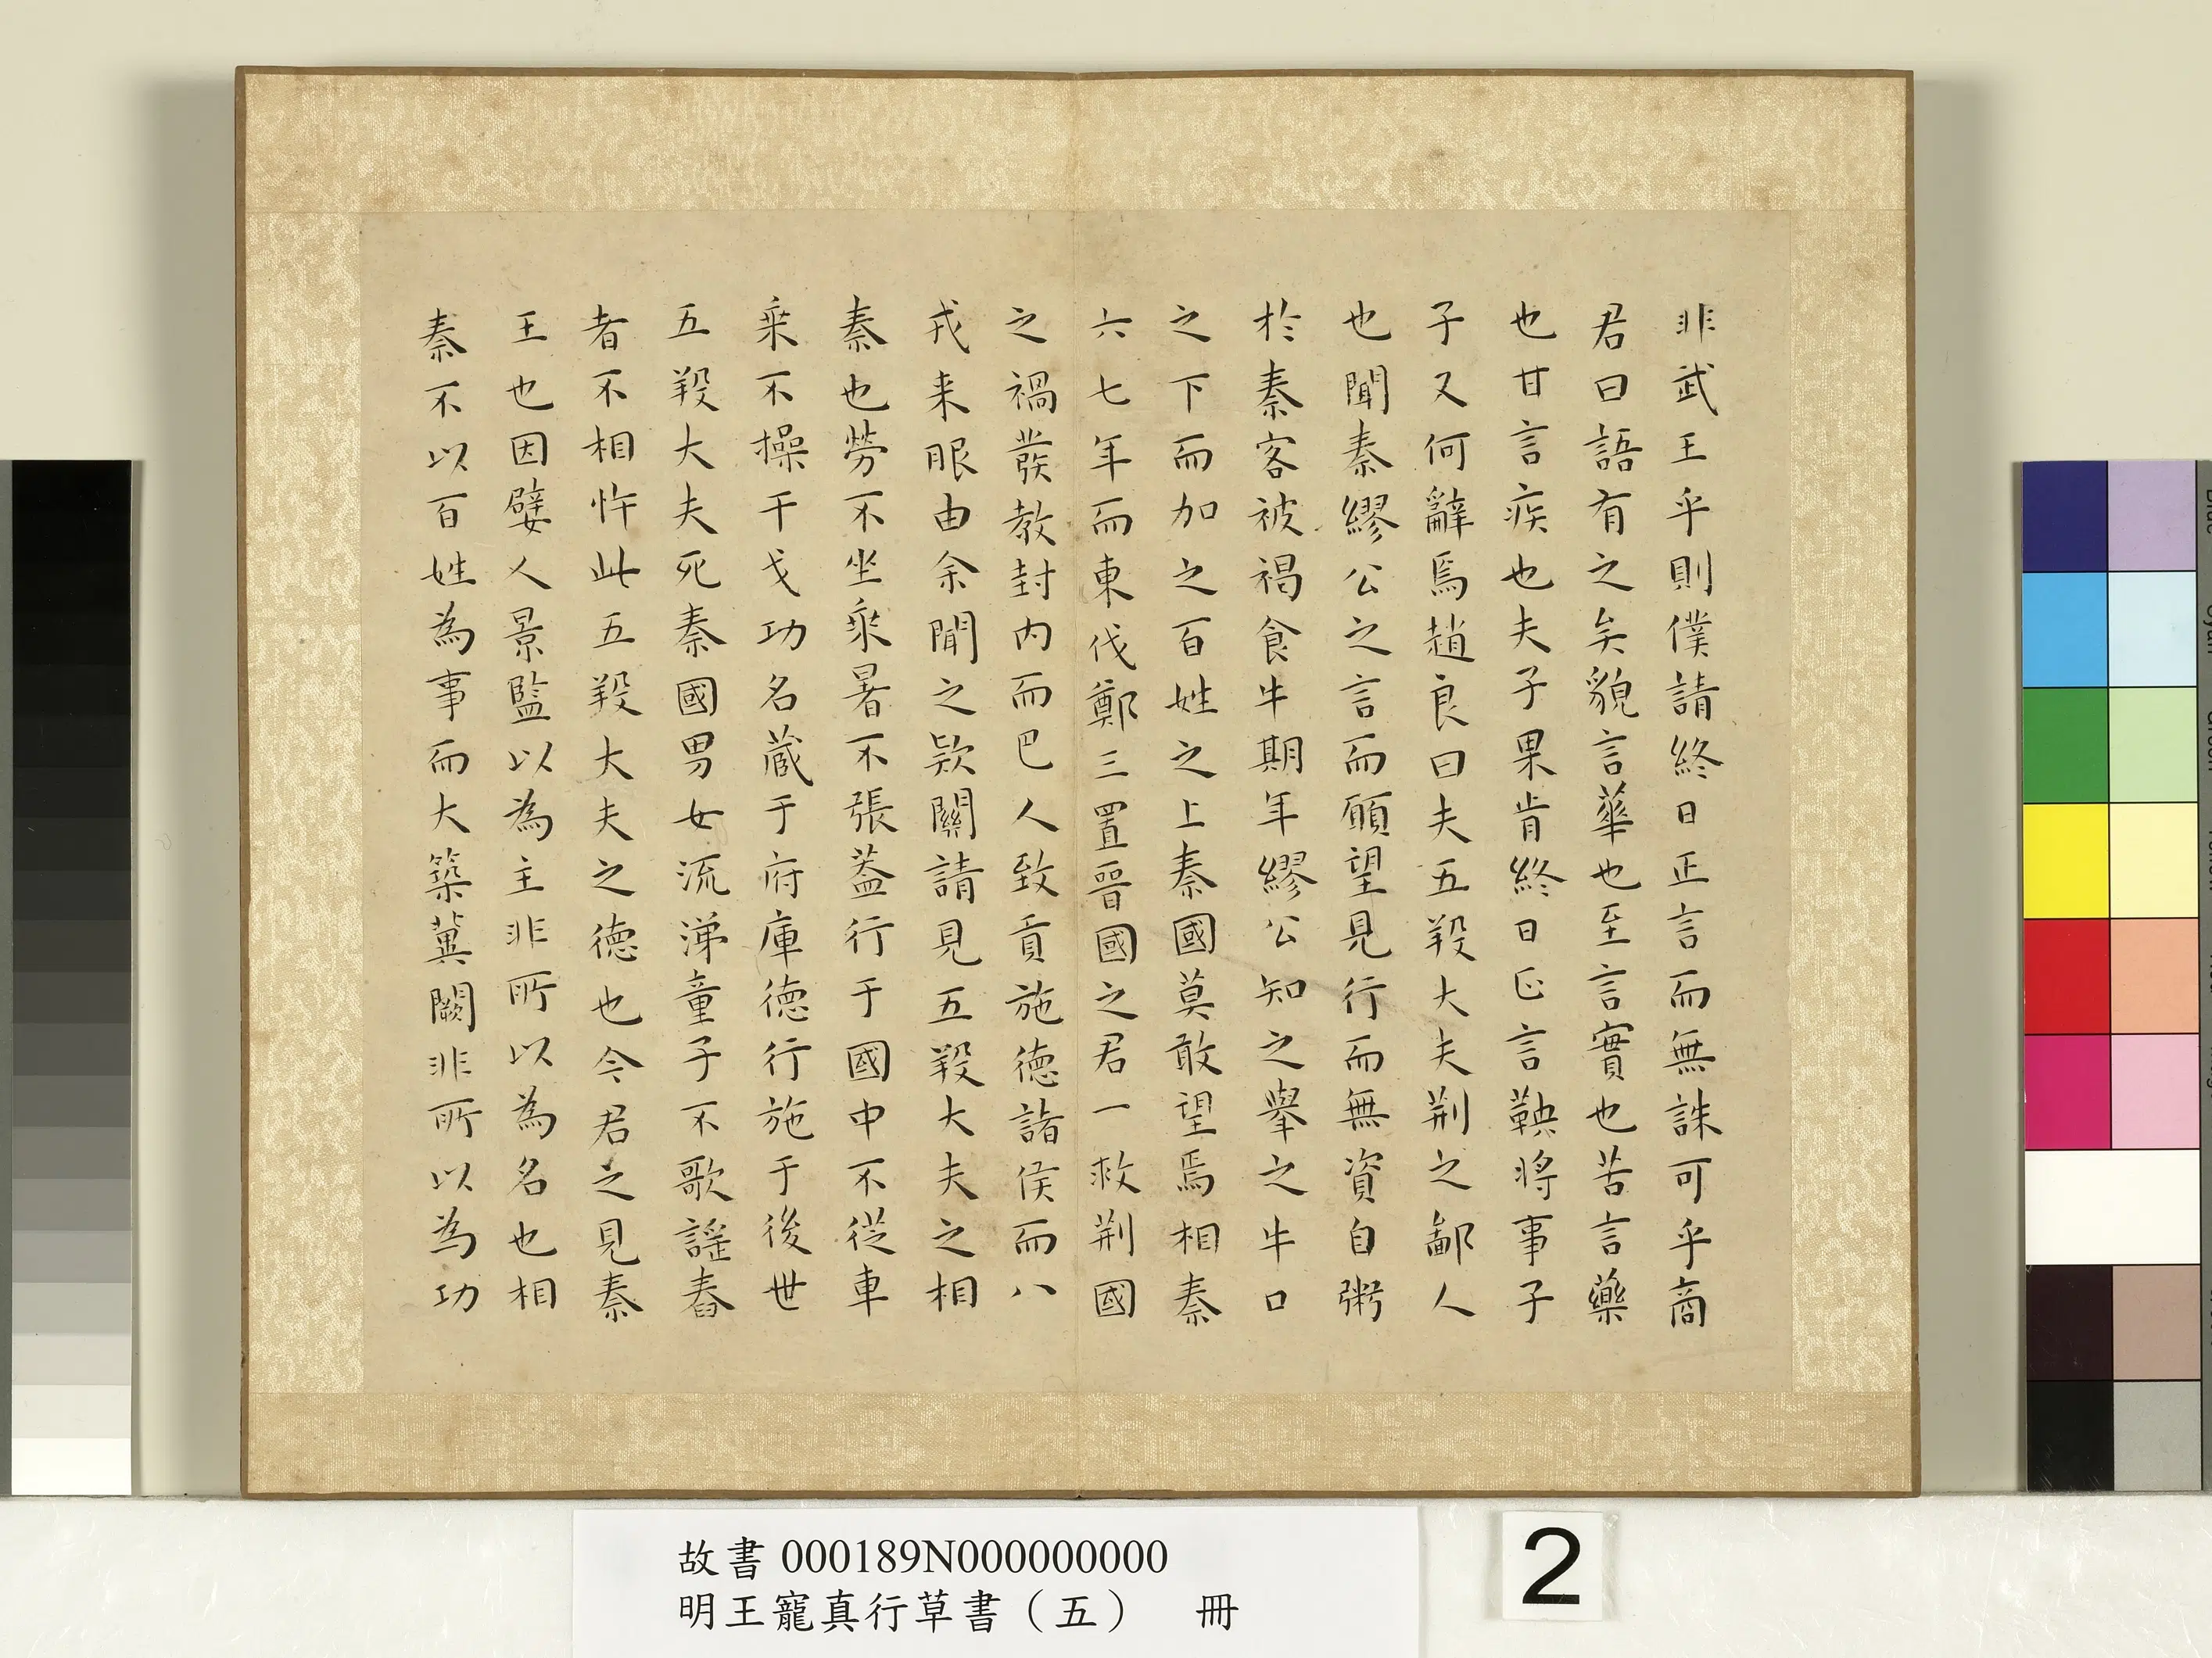 非武王乎則僕請終日正言而無誅可乎商
君曰語有之矣貌言華也至言實也苦言藥
也甘言疾也夫子果肯終日正言鞅將事子
子又何辭焉趙良曰夫五羖大夫荆之鄙人
也聞秦繆公之言而願望見行而無資自粥
於秦客被褐食牛期年繆公知之舉之牛口
之下而加之百姓之上秦國莫敢望焉相秦
六七年而東伐鄭三置晉國之君一救荆國
之禍發教封内而巴人致貢施德諸侯而八
戎来服由余聞之欵關請見五羖大夫之相
秦也勞不坐乘暑不張蓋行于國中不從車
乘不操干戈功名蔵于府庫德行施于後世
五羖大夫死秦國男女流涕童子不歌謡舂
者不相忤此五羖大夫之德也今君之見秦
王也因嬖人景監以為主非所以為名也相
秦不以百姓為事而大築冀闕非所以為功
故書000189N000000000
明王寵真行草書（五） 冊
2